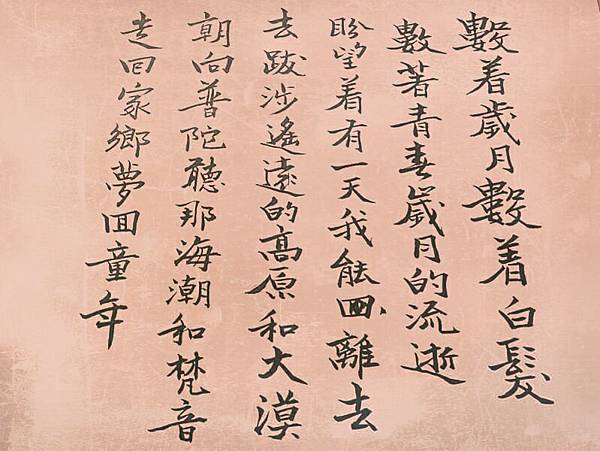 數着歲月數着白髮
數著青春歲月的流逝
盼望着有一天我能離去
去跋涉遙遠的高原和大漠
朝向普陀聽那海潮和梵音
走回家鄉夢回童年